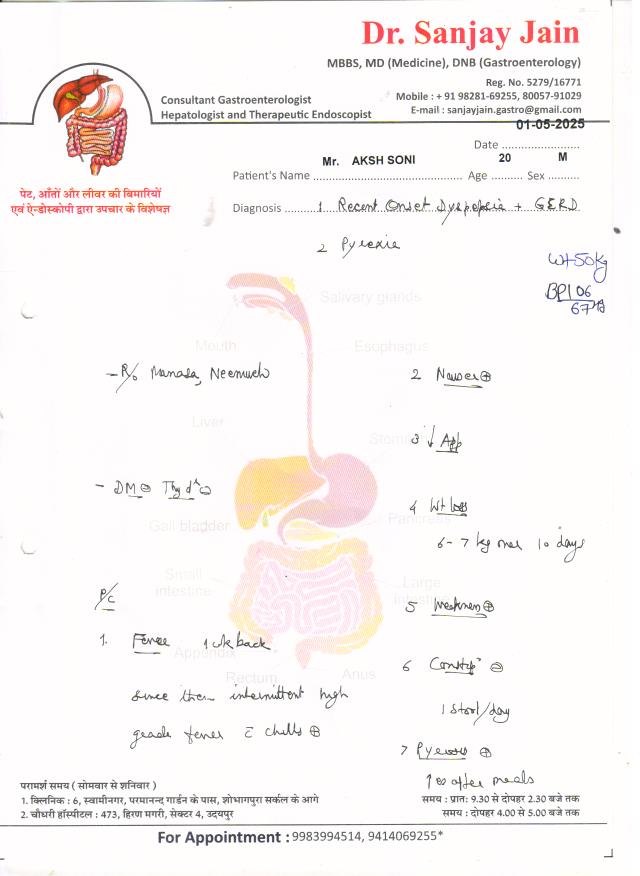 Dr. Sanjay Jain
MBBS, MD (Medicine), DNB (Gastroenterology)
Reg. No. 5279/16771
Mobile : + 91 98281-69255, 80057-91029
E-mail : sanjayjain.gastro@gmail.com
Consultant Gastroenterologist
Hepatologist and Therapeutic Endoscopist
पेट, आँतों और लीवर की बिमारियों
एवं ऐन्डोस्कोपी द्वारा उपचार के विशेषज्ञ
01-05-2025
Date ..................
Mr. AKSH SONI 20 M
Patient's Name .......................................... Age ......... Sex .........
Diagnosis 1 Recent Onset Dyspepsia + GERD
2 Pyrexia
Wt 50 kg
BP 106
67
Salivary glands
Mouth
Esophagus
- R/o Manasa, Neemuch
2 Nausea ⊕
Liver
Stomach
3 ↓ App
- DM ⊖ Thy d° ⊖
4 Wt loss
Gall bladder
Pancreas
6 - 7 kg over 10 days
Small intestine
Large intestine
P/C
5 Weakness ⊕
1. Fever 1 wk back
Appendix
6 Constip° ⊖
Rectum
Anus
since then intermittent high
1 Stool/day
grade fever c̄ chills ⊕
7 Pyrosis ⊕
↑es after meals
परामर्श समय ( सोमवार से शनिवार )
1. क्लिनिक : 6, स्वामीनगर, परमानन्द गार्डन के पास, शोभागपुरा सर्कल के आगे
समय : प्रात: 9.30 से दोपहर 2.30 बजे तक
2. चौधरी हॉस्पीटल : 473, हिरण मगरी, सेक्टर 4, उदयपुर
समय : दोपहर 4.00 से 5.00 बजे तक
For Appointment : 9983994514, 9414069255*